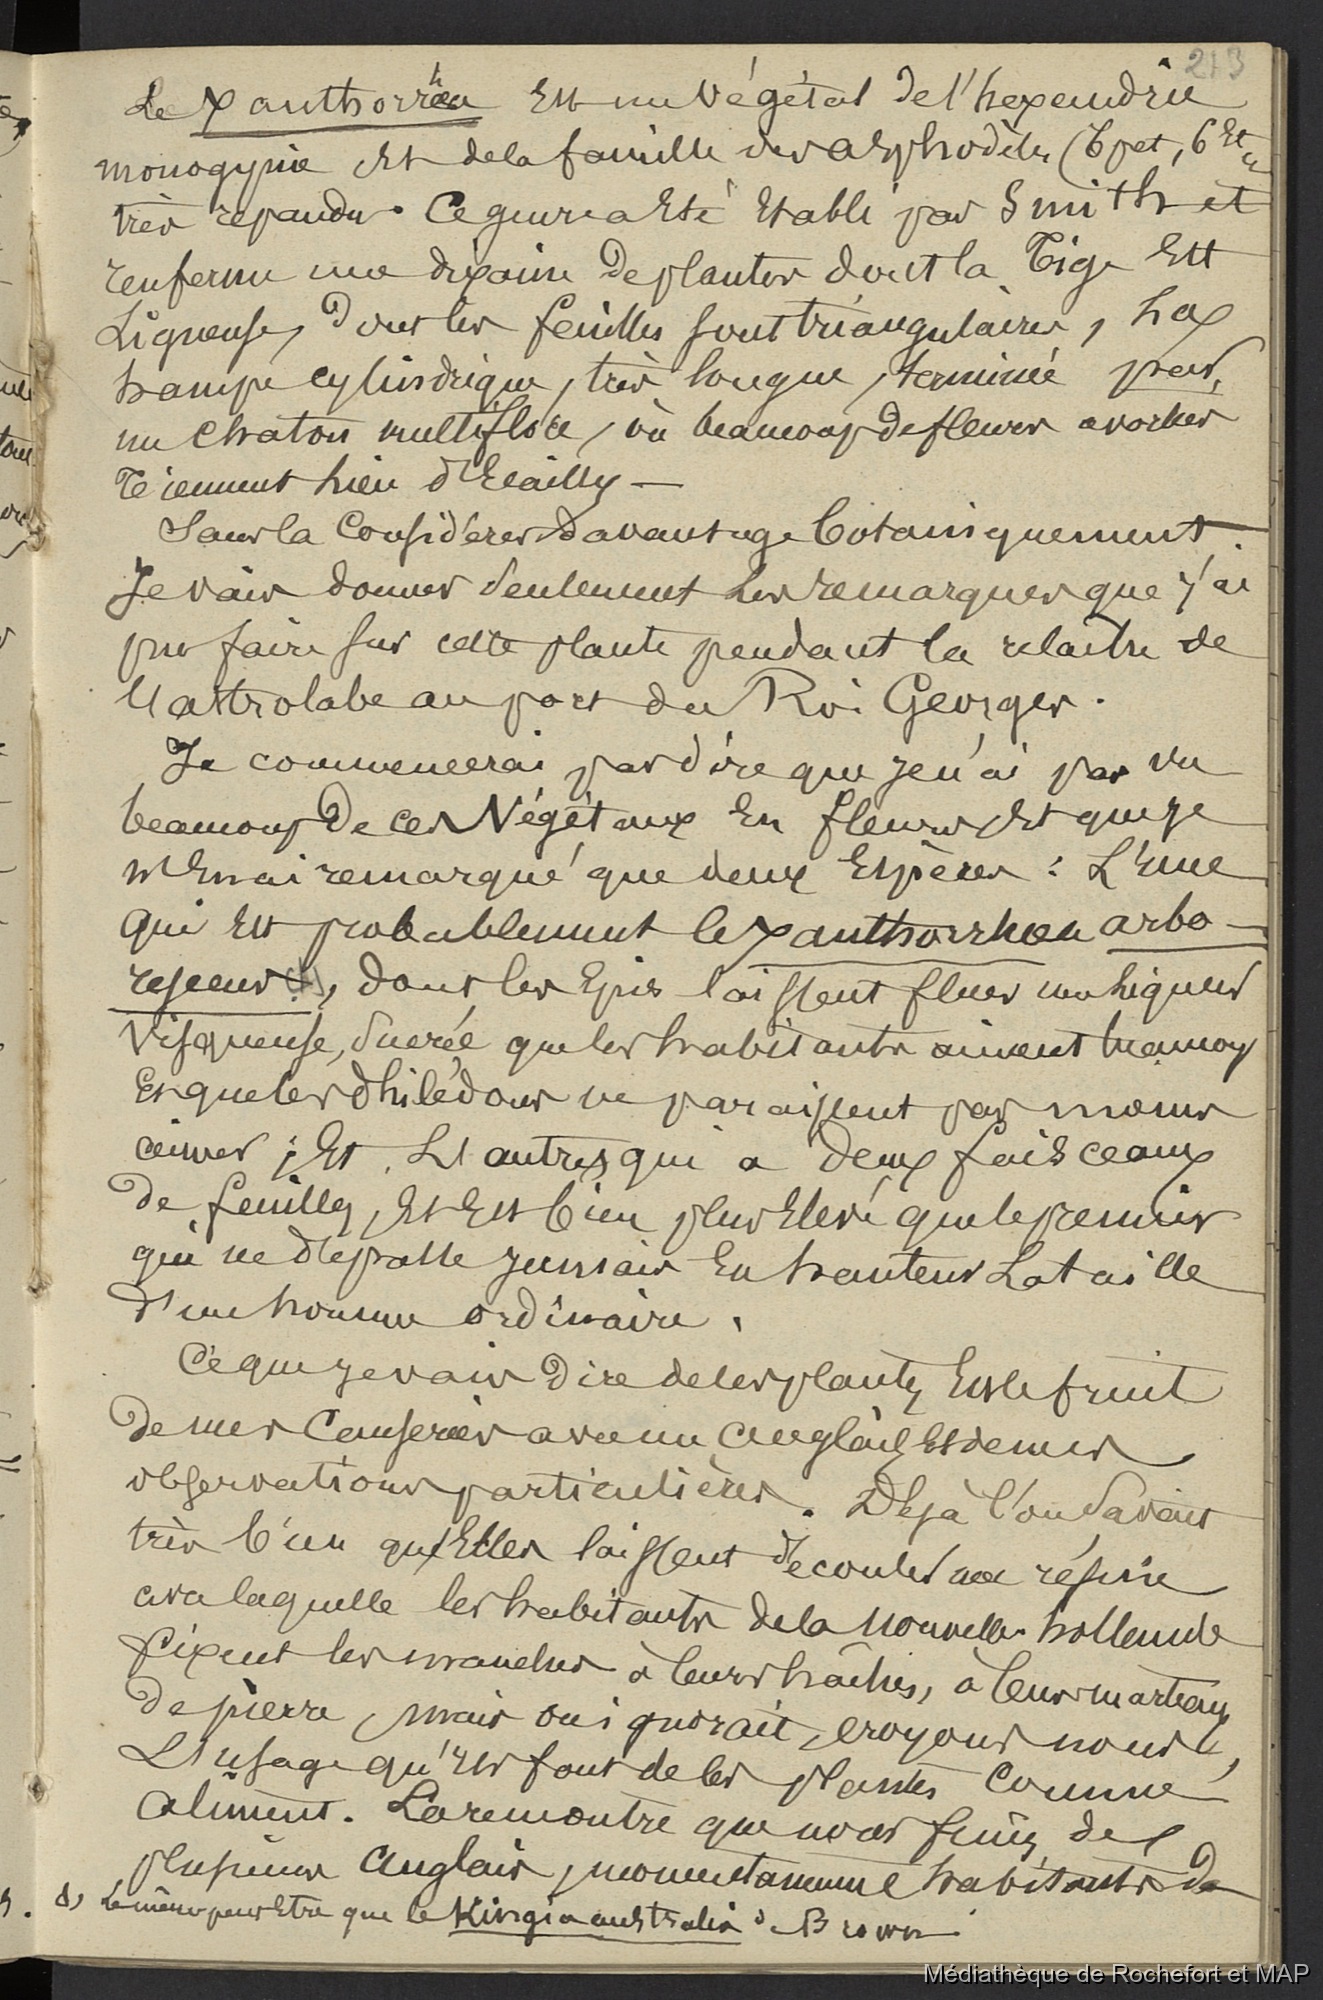 213
Le Xanthorrhea Est un Végétal de l'hexandrie
monogynie Et de la famille des asphodèles (6 pet, 6 Et
très repandu. Ce genre a Eté Etabli par Smith et
renferme une dixaine De plantes dont la Tige Est
Ligneuse, Dont les feuilles sont triangulaires, La
hampe cylindrique, très longue, terminée par
un chaton multiflore, où beaucoup de fleurs avortées
Tiennent lieu d'Ecailles —
Sans la Considérer davantage Botaniquement
Je vais donner Seulement Les remarques que j'ai
pu faire sur cette plante pendant la relache de
l'astrolabe au port du Roi Georges.
Je commencerai par dire que je n'ai pas vu
beaucoup De ces Végétaux En fleurs, Et que je
n'En ai remarqué que deux Espèces : L'Une
qui Est probablement le Xanthorrhoea arbo-
rescens (1), dont les Epis laissent fluer une liqueur
Visqueuse, Sucrée que les habitants aiment beaucoup
Et que les Philédons ne paraissent pas moins
aimer ; Et L'autre, qui a Deux faisceaux
De feuilles, Et Est bien plus Elevé que le premier
qui ne dépasse jamais En hauteur La taille
d'un homme ordinaire.
Ce que je vais Dire de ces plantes Est le fruit
De mes Causeries avec un Anglais Et de mes
observations particulières. Déjà l'on Savait
très bien qu'Elles laissent découler une résine
avec laquelle les habitants de la Nouvelle hollande
fixent les manches à leurs hâches, à leurs marteaux
De pierre, mais on ignorait, croyons nous,
L'usage qu'ils font de ces plantes Comme
Aliment. La rencontre que nous fimes de
plusieurs Anglais, momentanément habitants De
(1) Le même peut Etre que le Kingia australis de Brown
Médiathèque de Rochefort et MAP